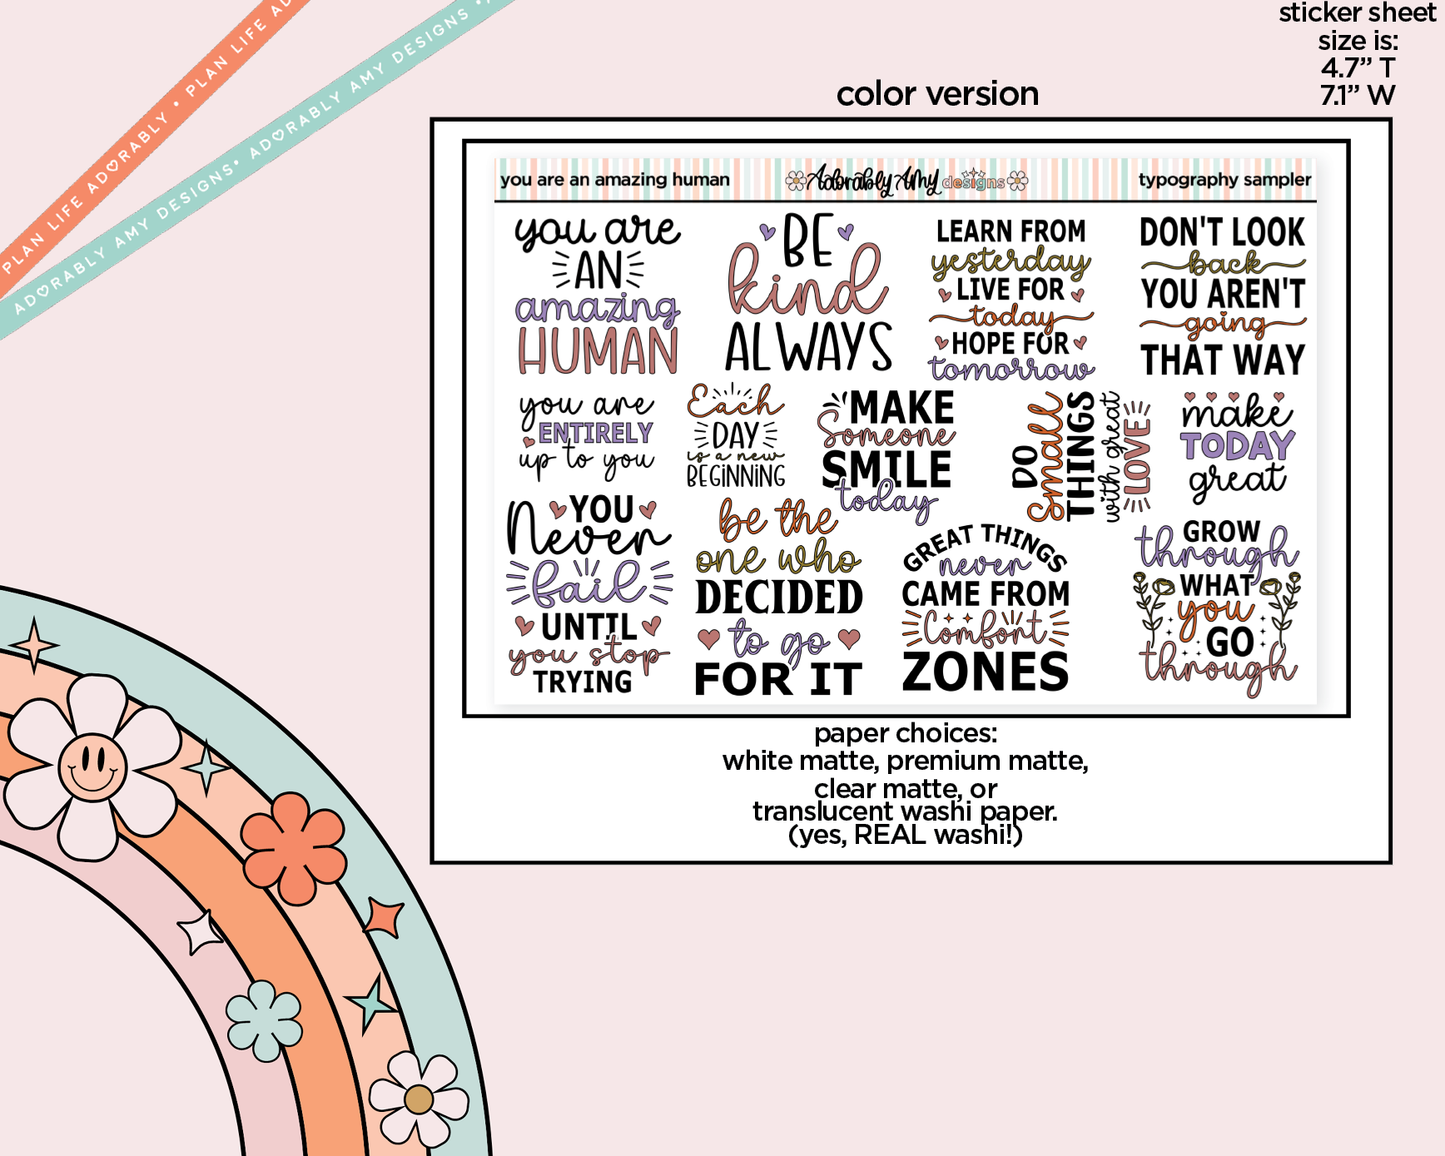 sticker sheet
size is:
4.7" T
7.1" W
PLAN LIFE ADORABLY • PLAN LIFE AD
ADORABLY AMY DESIGNS• ADORABLY AMY DESIGNS •
color version
you are an amazing human
Adorably Amy designs
typography sampler
you are
AN
amazing
HUMAN
BE
kind
ALWAYS
LEARN FROM
yesterday
LIVE FOR
today
HOPE FOR
tomorrow
DON'T LOOK
back
YOU AREN'T
going
THAT WAY
you are
ENTIRELY
up to you
Each
DAY
is a new
BEGINNING
MAKE
Someone
SMILE
today
DO
Small
THINGS
with great
LOVE
make
TODAY
great
YOU
Never
fail
UNTIL
you stop
TRYING
be the
one who
DECIDED
to go
FOR IT
GREAT THINGS
never
CAME FROM
Comfort
ZONES
GROW
through
WHAT
you
GO
through
paper choices:
white matte, premium matte,
clear matte, or
translucent washi paper.
(yes, REAL washi!)